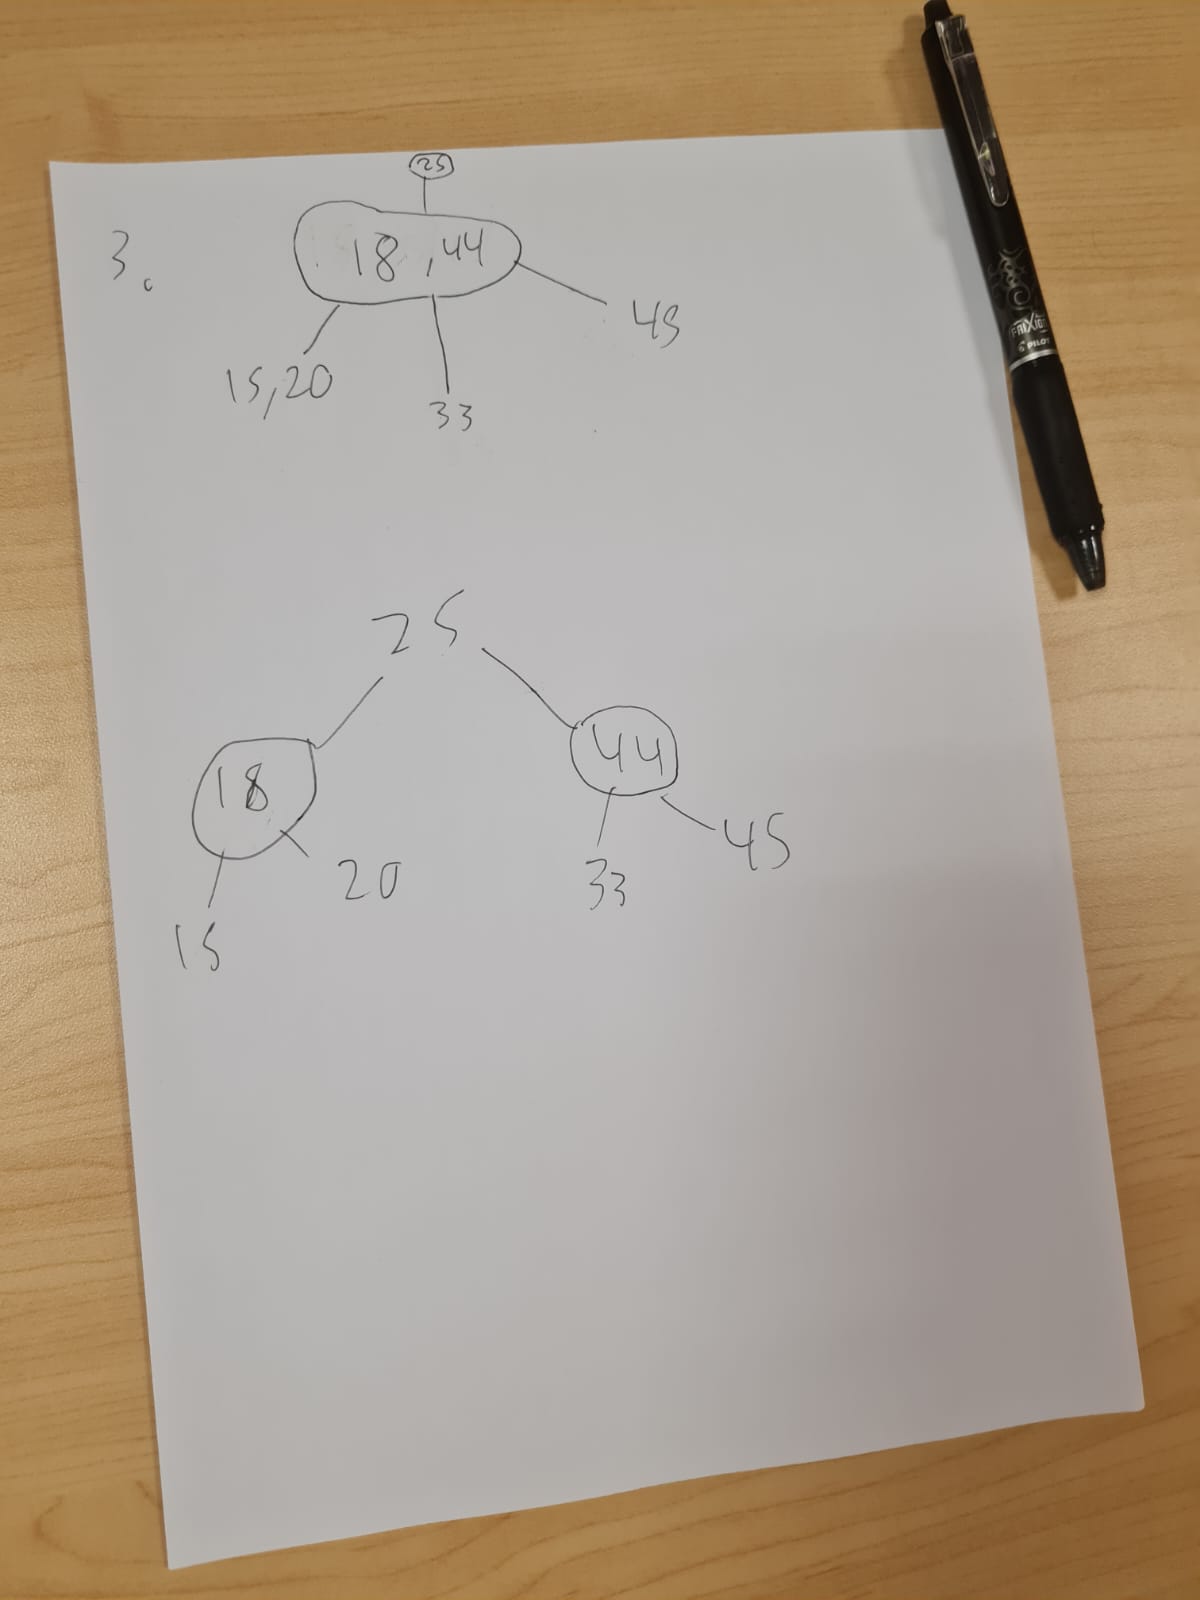 25
3.
18,44
45
15,20
33
25
18
44
15
20
33
45
FRIXION
PILOT